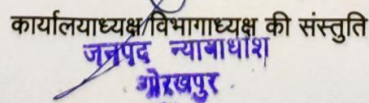 कार्यालयाध्यक्ष/विभागाध्यक्ष की संस्तुति
जनपद न्यायाधीश
गोरखपुर